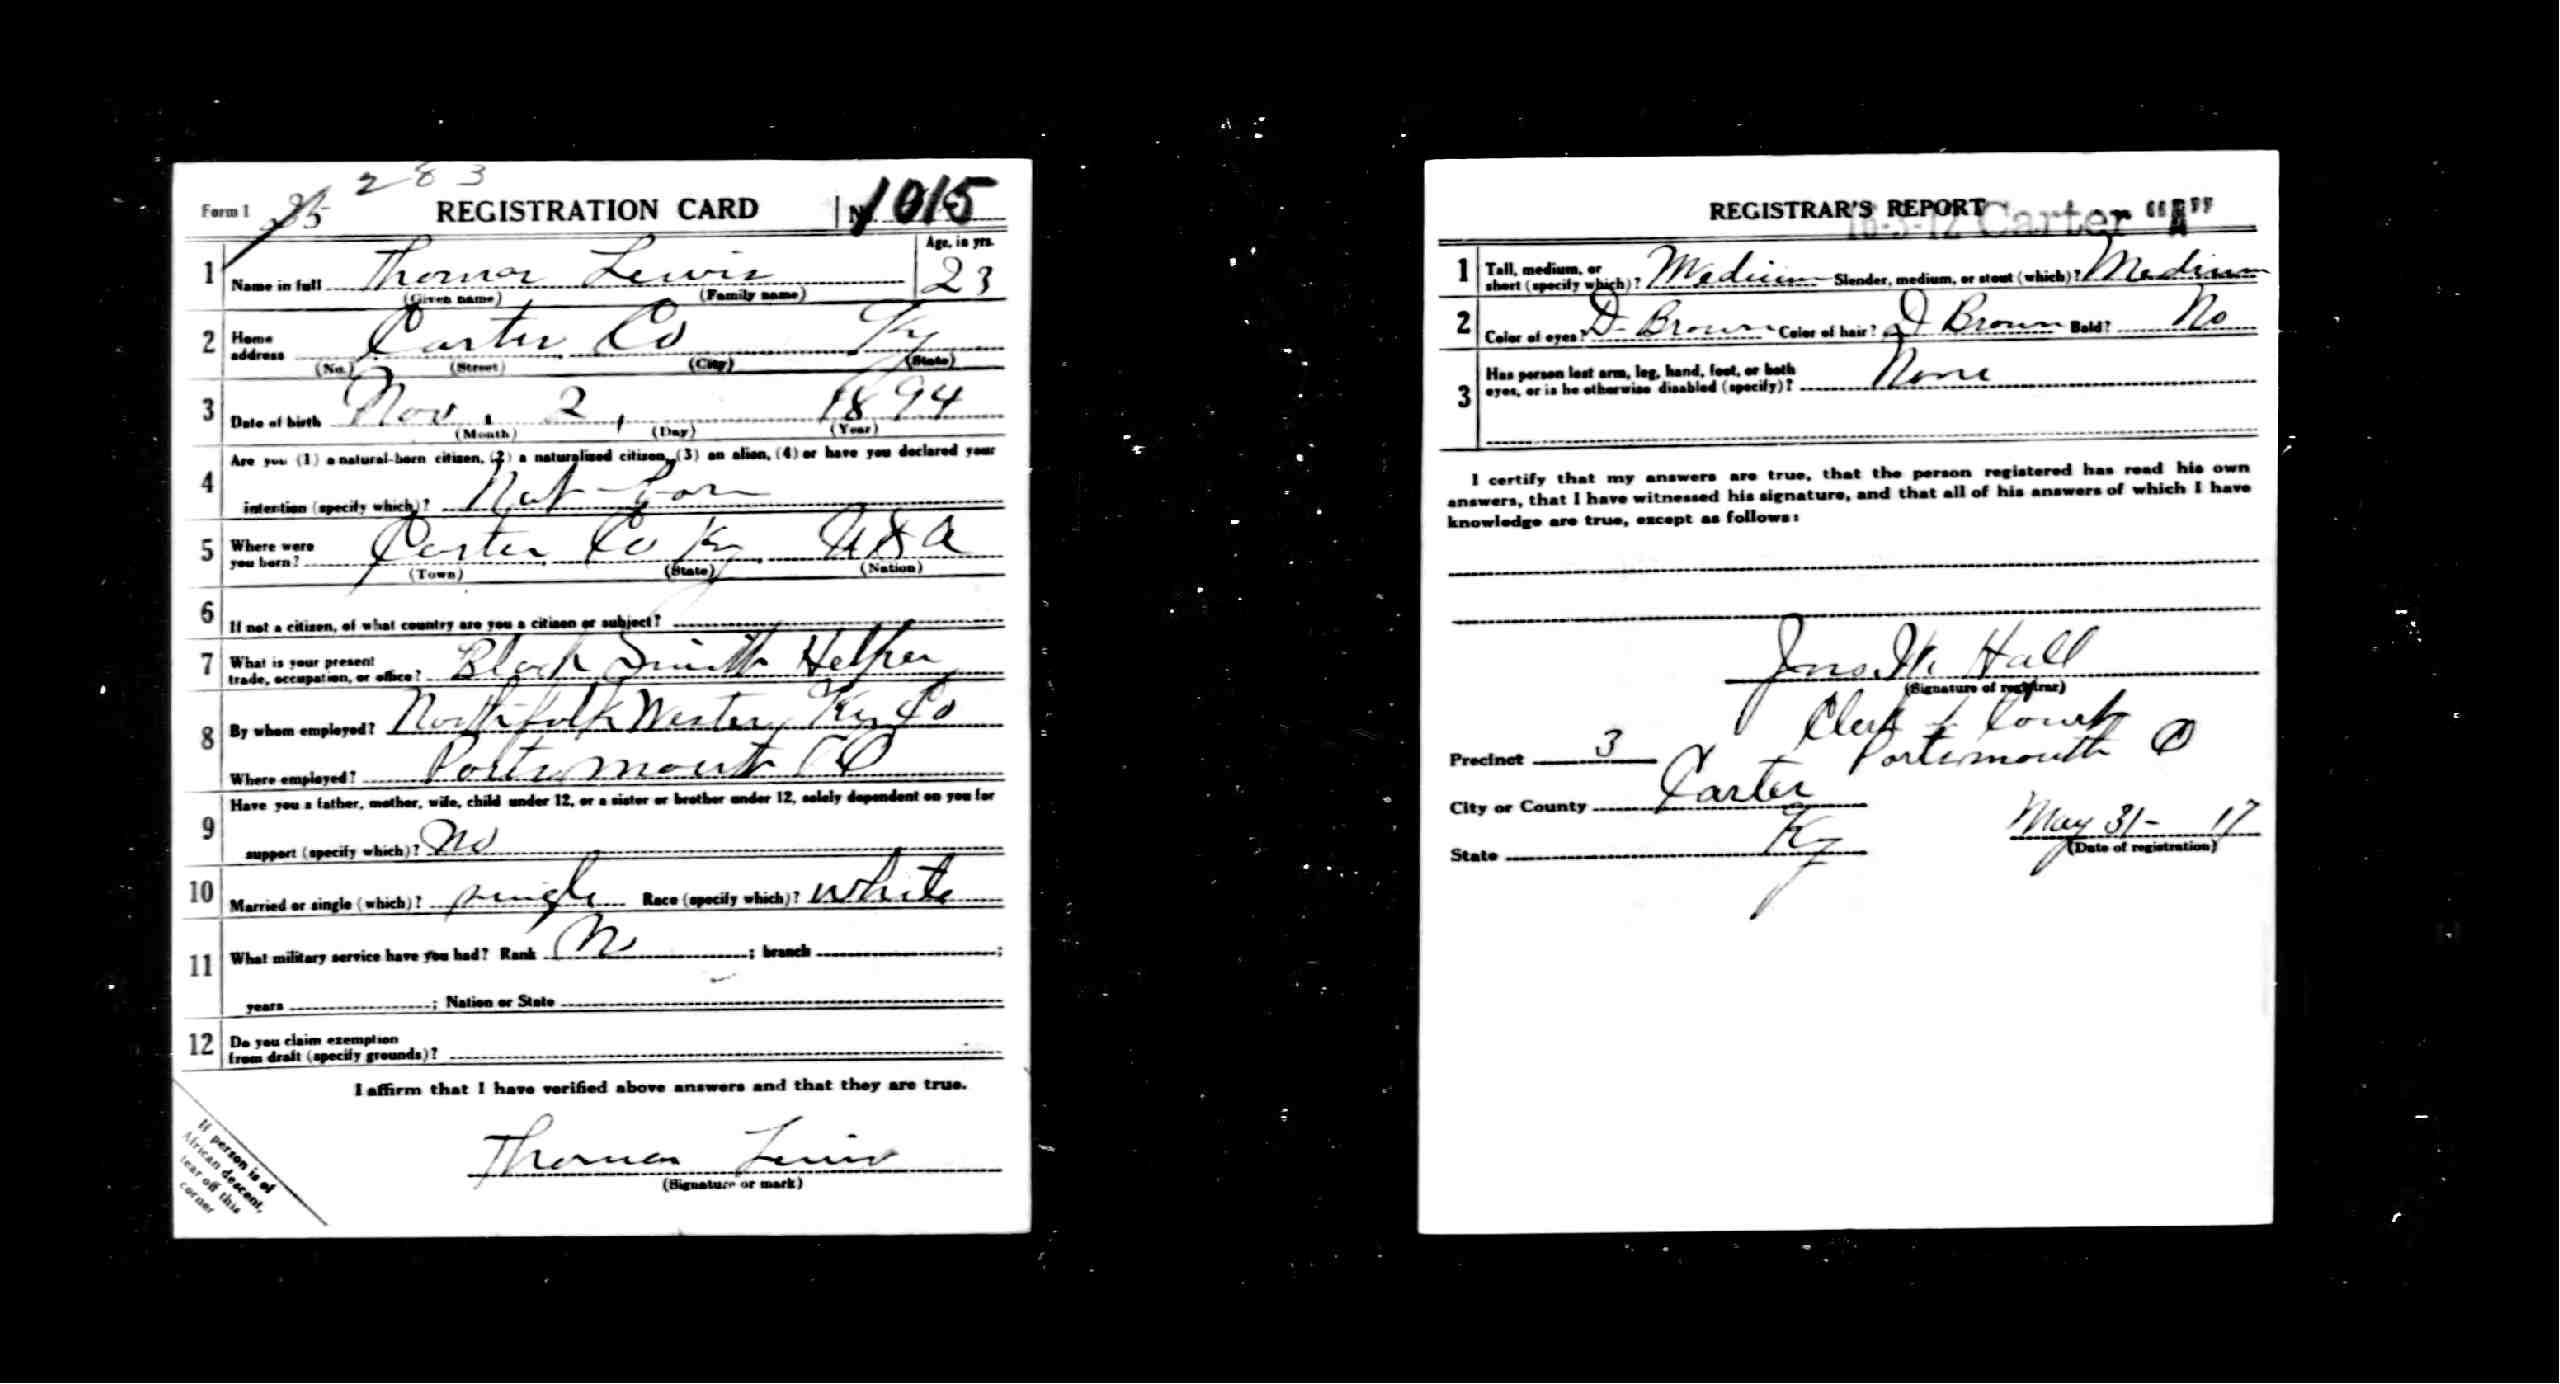 283
Form 1 35 REGISTRATION CARD No. 1015
1 Name in full Thomas Lewis Age, in yrs. 23
(Given name) (Family name)
2 Home address Carter Co Ky
(No.) (Street) (City) (State)
3 Date of birth Nov. 2, 1894
(Month) (Day) (Year)
4 Are you (1) a natural-born citizen, (2) a naturalized citizen, (3) an alien, (4) or have you declared your
intention (specify which)? Nat-Born
5 Where were you born? Carter Co Ky, USA
(Town) (State) (Nation)
6 If not a citizen, of what country are you a citizen or subject?
7 What is your present trade, occupation, or office? Black Smith Helper
8 By whom employed? Northfolk Western Ry Co
Where employed? Portsmouth O
9 Have you a father, mother, wife, child under 12, or a sister or brother under 12, solely dependent on you for
support (specify which)? No
10 Married or single (which)? single Race (specify which)? white
11 What military service have you had? Rank No ; branch ;
years ; Nation or State
12 Do you claim exemption from draft (specify grounds)?
I affirm that I have verified above answers and that they are true.
Thomas Lewis
(Signature or mark)
If person is of
African descent,
tear off this
corner
REGISTRAR'S REPORT
16-3-12 Carter "A"
1 Tall, medium, or short (specify which)? Medium Slender, medium, or stout (which)? Medium
2 Color of eyes? D-Brown Color of hair? D Brown Bald? No
3 Has person lost arm, leg, hand, foot, or both
eyes, or is he otherwise disabled (specify)? None
I certify that my answers are true, that the person registered has read his own
answers, that I have witnessed his signature, and that all of his answers of which I have
knowledge are true, except as follows:
Hall
(Signature of registrar)
Clerk of Court
Portsmouth O
Precinct 3
City or County Carter
State Ky
May 31- 17
(Date of registration)